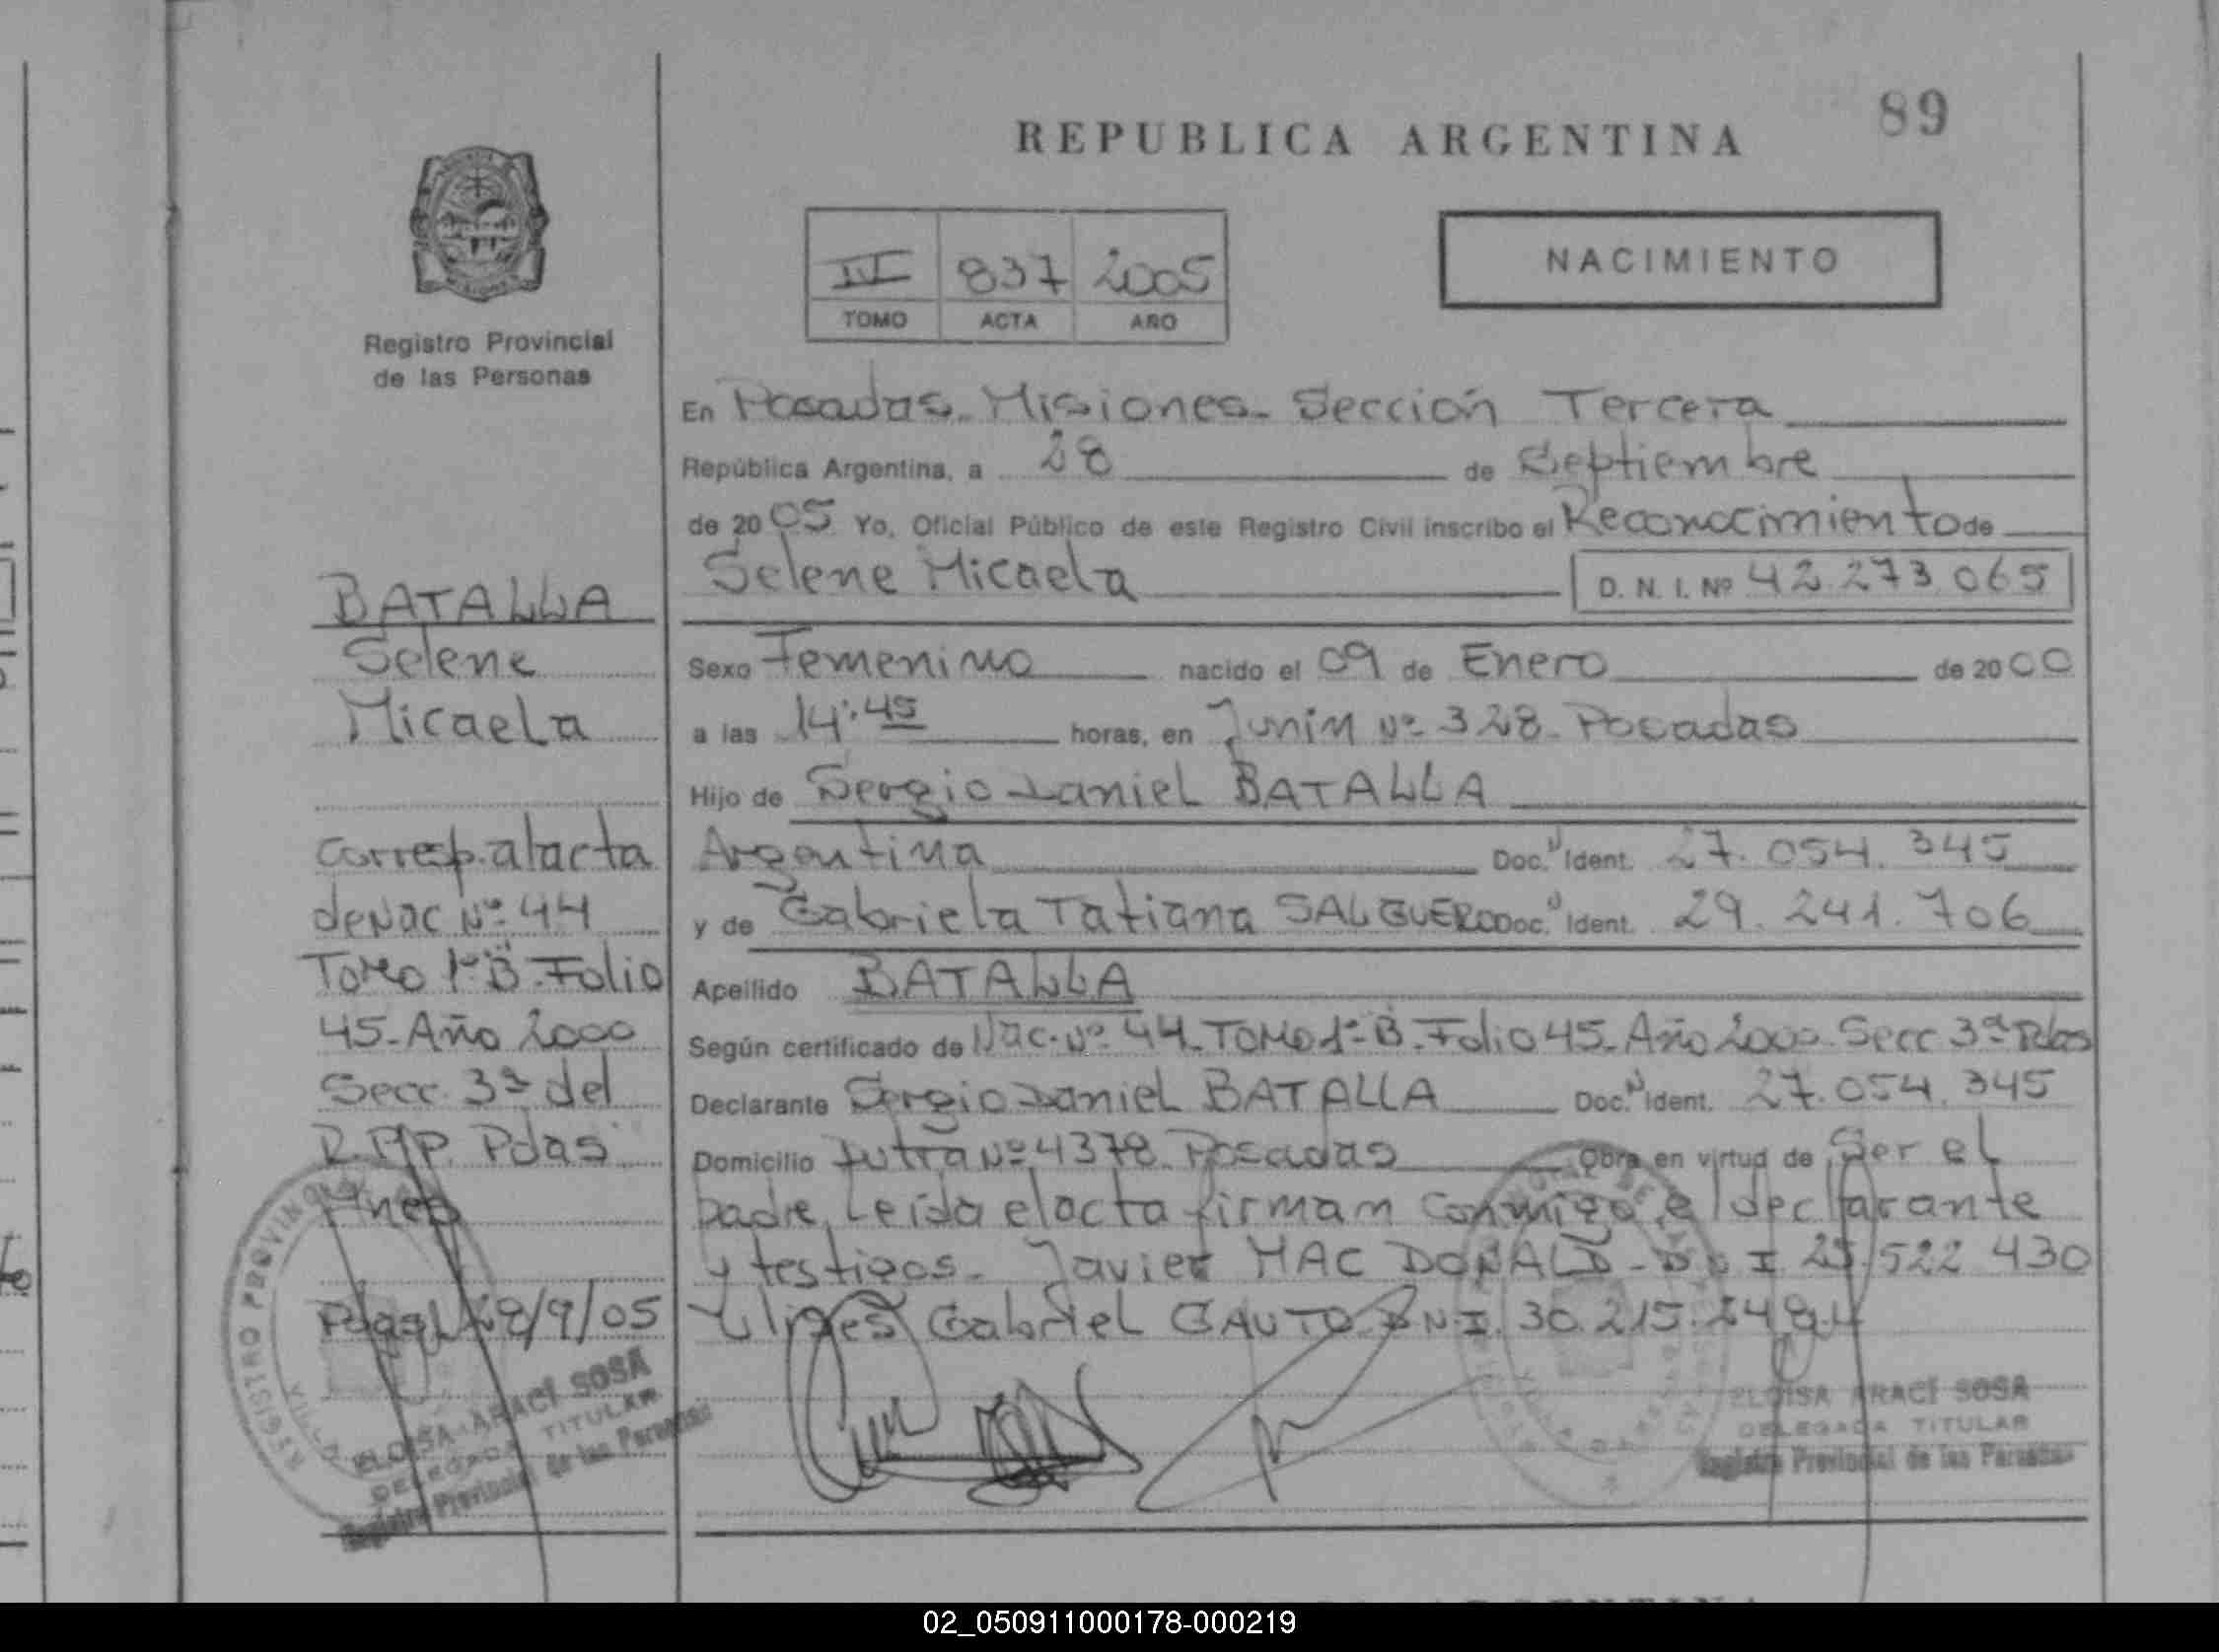 89
REPUBLICA ARGENTINA
837 2005
TOMO ACTA AÑO
NACIMIENTO
Registro Provincial
de las Personas
BATALLA
Selene
Micaela
Corresp. al acta
de Nac Nº 44
Tomo 1º B. Folio
45 - Año 2000
Secc. 3ª del
R.P.P. Pdas
Mnes
Pdas, 28/9/05
ELOISA ARACÍ SOSA
DELEGADA TITULAR
Registro Provincial de las Personas
REGISTRO PROVINCIAL
En Posadas. Misiones - Sección Tercera
República Argentina, a 28 de Septiembre
de 2005 Yo, Oficial Público de este Registro Civil inscribo el Reconocimiento de
Selene Micaela D. N. I. Nº 42.273.065
Sexo Femenino nacido el 09 de Enero de 2000
a las 14:45 horas, en Junin Nº 328 - Posadas
Hijo de Sergio Daniel BATALLA
Argentina Doc. Ident. 27.054.345
y de Gabriela Tatiana SALGUERO Doc. Ident. 29.241.706
Apellido BATALLA
Según certificado de Nac. Nº 44 - Tomo 1º B. Folio 45 - Año 2000. Secc 3ª Pdas
Declarante Sergio Daniel BATALLA Doc. Ident. 27.054.345
Domicilio Dutra Nº 4378. Posadas Obra en virtud de Ser el
padre, Leída el acta firman conmigo, el declarante
y testigos - Javier MAC DONALD - D.N.I 25.522.430
Gabriel GAUTO D.N.I. 30.215.
ELOISA ARACÍ SOSA
DELEGADA TITULAR
Registro Provincial de las Personas
02_050911000178-000219